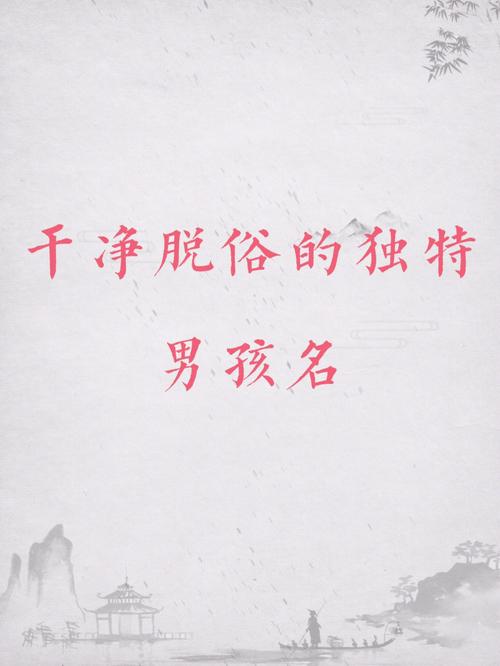 干净脱俗的独特
男孩名